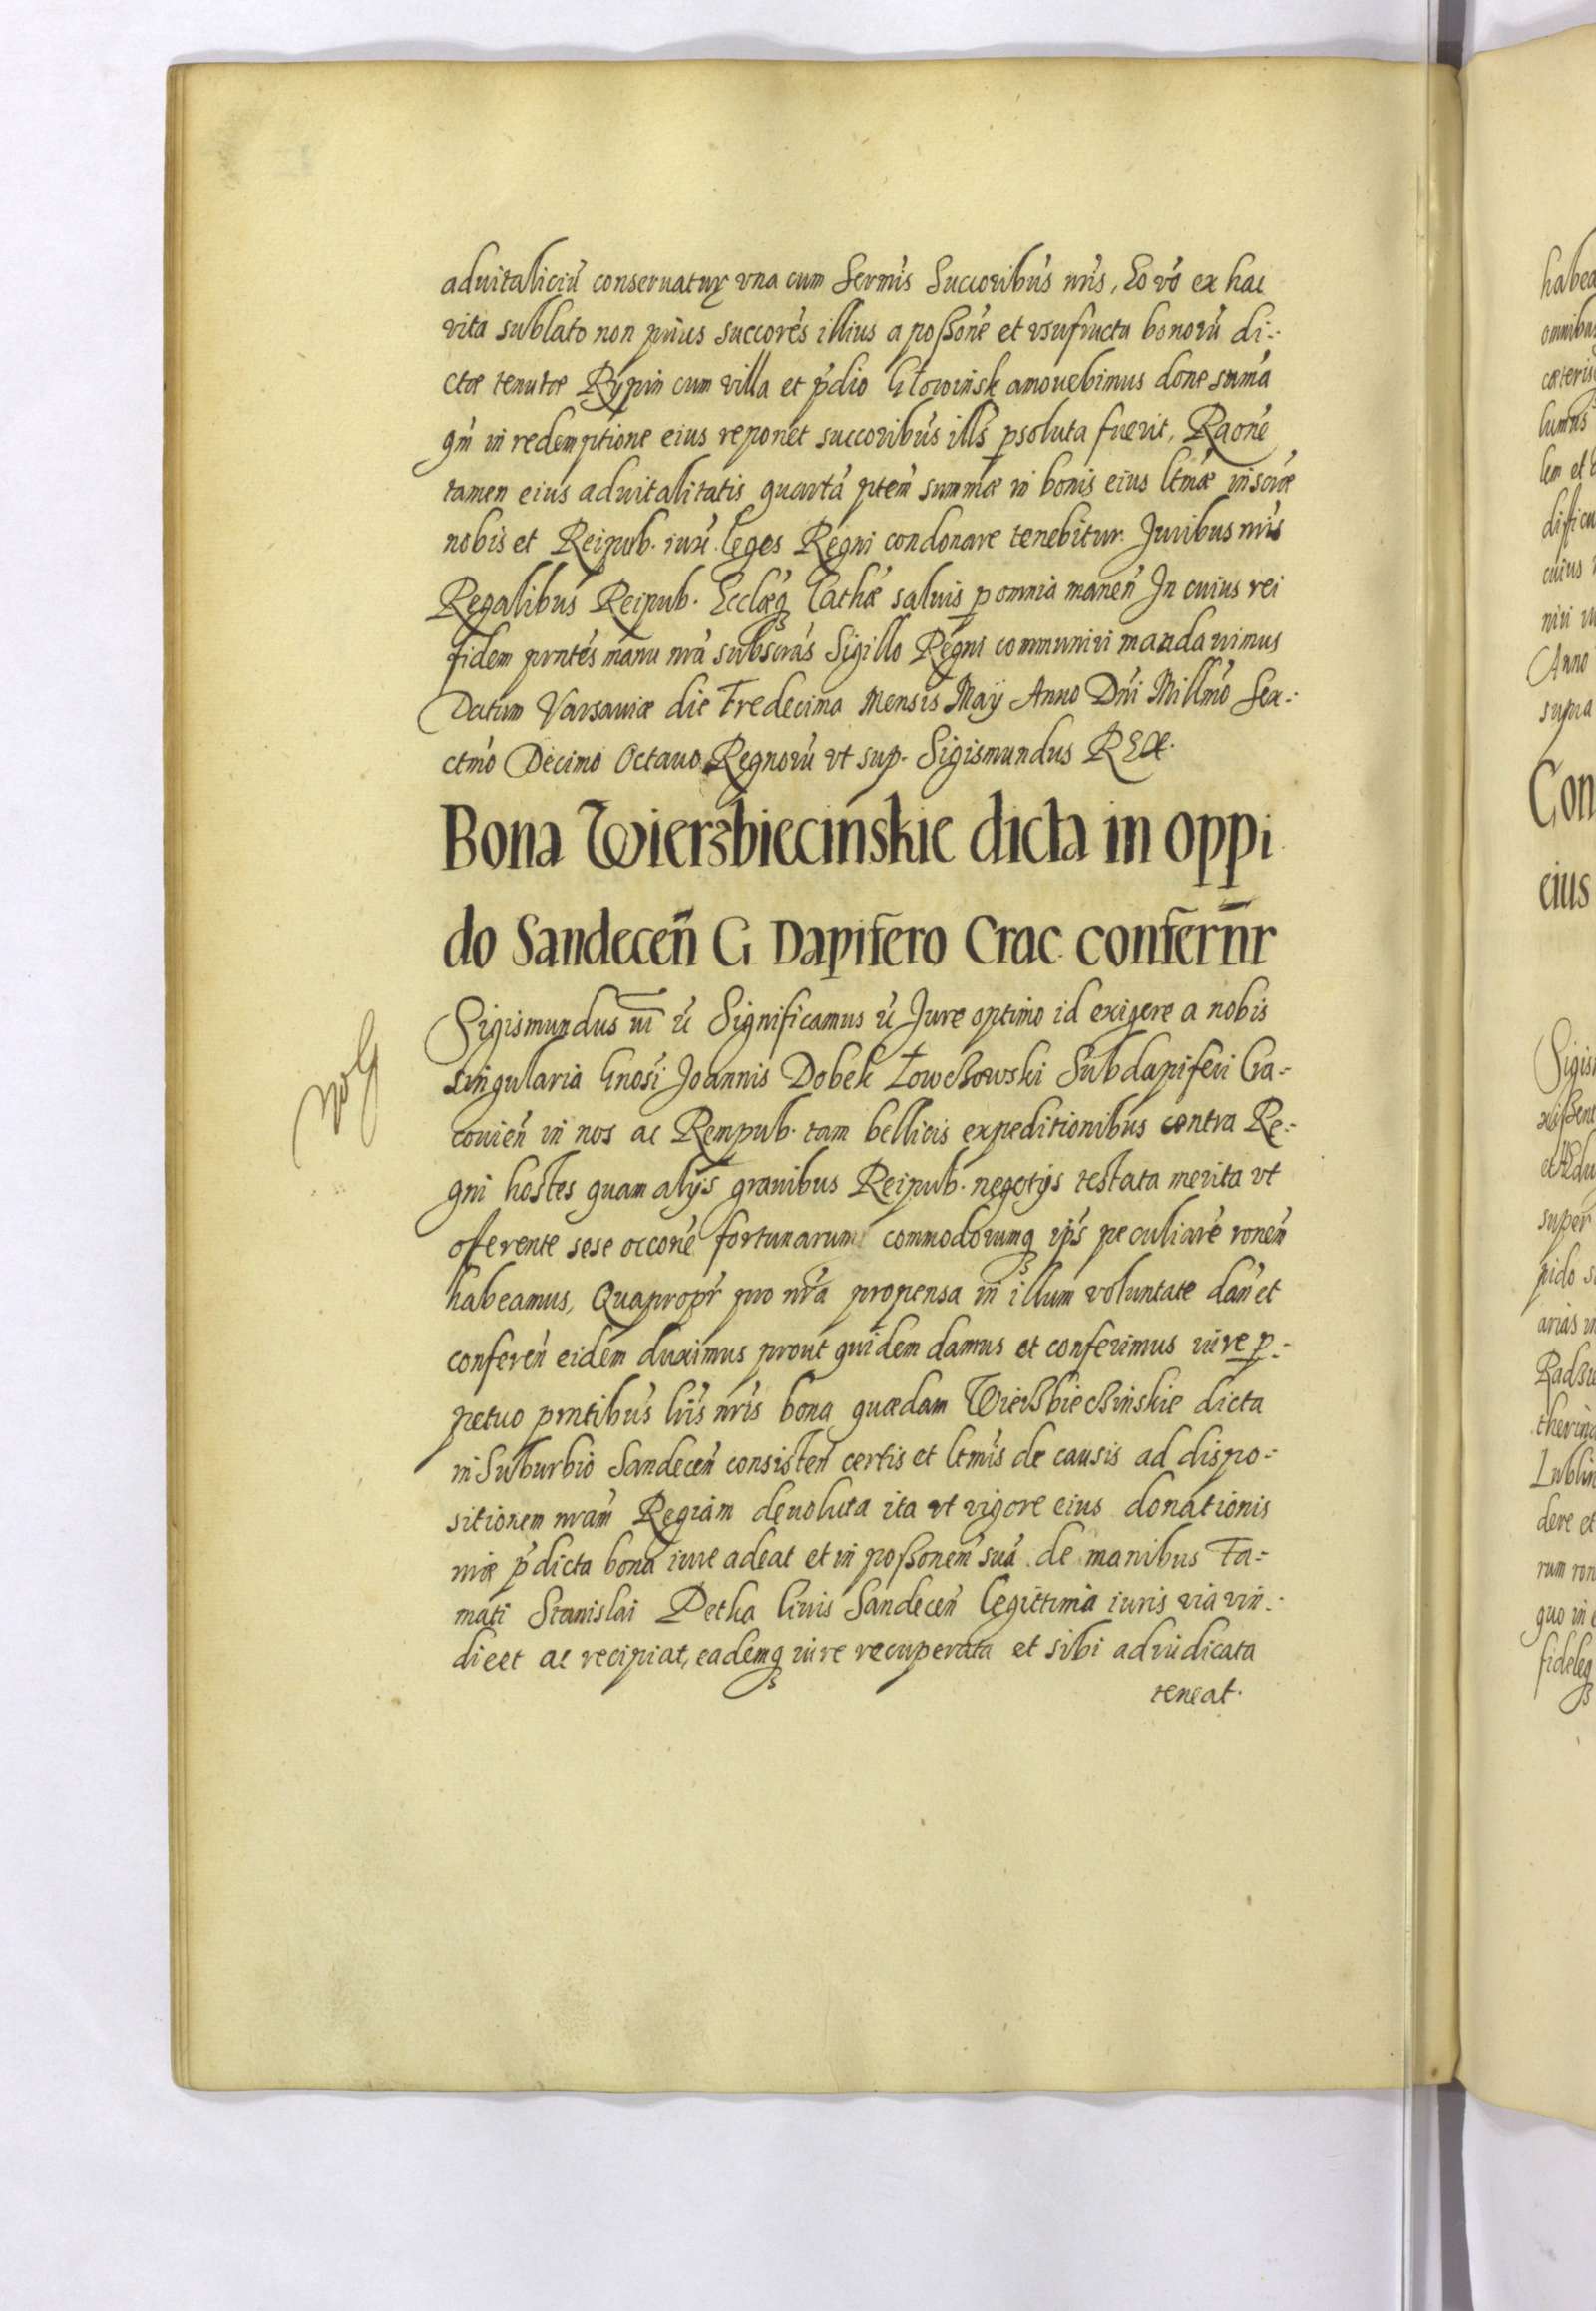 aduitaliciū conseruatur vna cum Sermis Succoribus nris, Eo vō ex hac
vita sublato non prius succores illius a poßone et vsufructu bonorū di-
ctæ tenutæ Rypin cum villa et pdio Głowińsk amouebimus donec suma
qm in redemptione eius reponet succoribus ills psoluta fuerit, Raone
tamen eius aduitalitatis quartā ptem summæ in bonis eius ltmæ inscræ
nobis et Reipub. iux leges Regni condonare tenebitur. Juribus nris
Regalibus Reipub. Ecclæq Cathæ saluis p omnia manen In cuius rei
fidem prntes manu nra subscras Sigillo Regni communiri mandauimus
Datum Varsauiæ die Tredecima Mensis Maÿ Anno Dni Millmo Sex-
ctmo Decimo Octauo Regnorū vt sup. Sigismundus REX.
Bona Wierzbiecinskie dicta in oppi
do Sandeceñ G Dapifero Crac. confernr
Sigismundus III ū Significamus ū Jure optimo id exigere a nobis
singularia Gnosi Joannis Dobek Łowczowski Subdapiferi Cra-
couien in nos ac Rempub. tam bellicis expeditionibus contra Re-
gni hostes quam alijs grauibus Reipub. negotijs testata merita vt
offerente sese occone fortunarum commodorumq ips peculiare ronem
habeamus, Quapropr pro nra propensa in illum voluntate dan et
conferen eidem duximus prout quidem damus et conferimus iure p-
petuo prntibus lris nris bona quædam Wierzbieczinskie dicta
in Suburbio Sandecen consisten certis et ltmis de causis ad dispo-
sitionem nram Regiam deuoluta ita vt vigore eius donationis
nræ pdicta bona iure adeat et in poßonem suā de manibus Fa-
mati Stanislai Petka Ciuis Sandecen legittima iuris via vin-
dicet ac recipiat, eademq iure recuperata et sibi adiudicata
teneat.